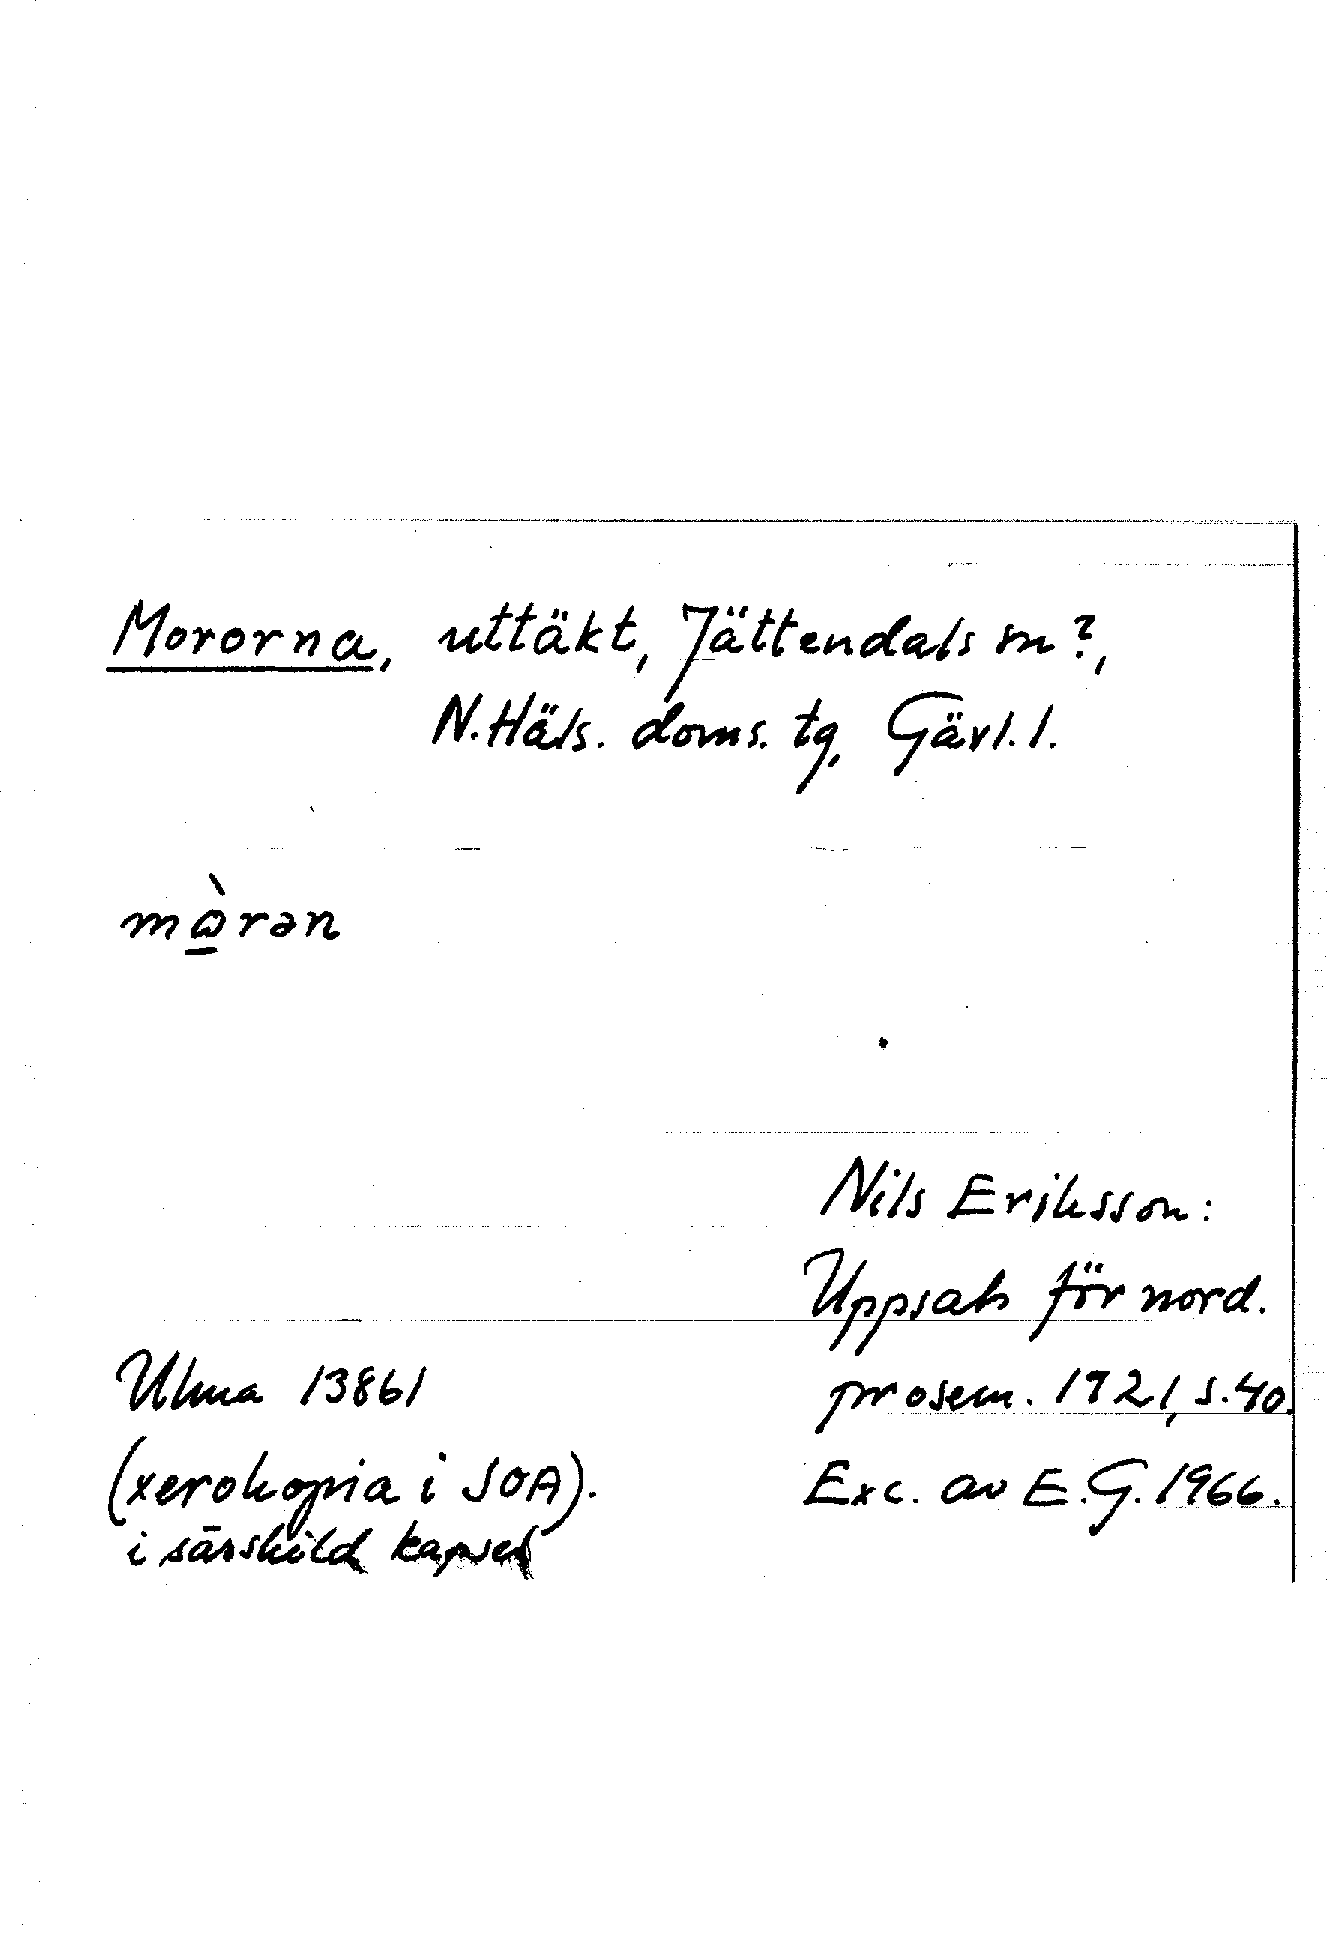 Mororna, uttäkt, Jättendals sn?,
N. Häls. doms. tg, Gävl. l.
mὼ̠rən
Nils Eriksson:
Uppsats för nord.
prosem. 1921, s. 40.
Exc. av E. G. 1966.
Ulma 13861
(xerokopia i SOA).
i särskild kapsel